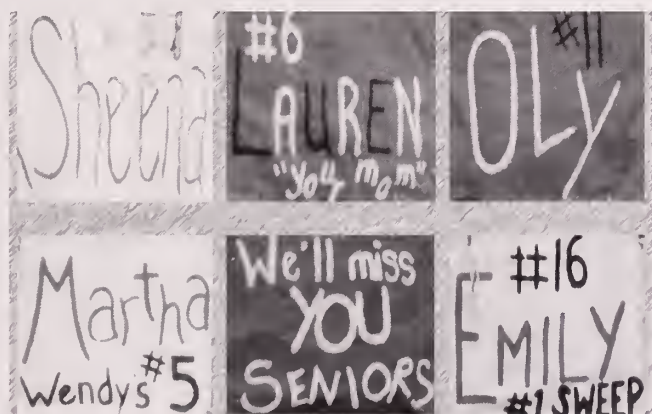 Sheena
#6
LAUREN
"your mom"
#11
OLy
Martha
Wendy's #5
We'll miss
YOU
SENIORS
#16
EMILY
#1 SWEEP